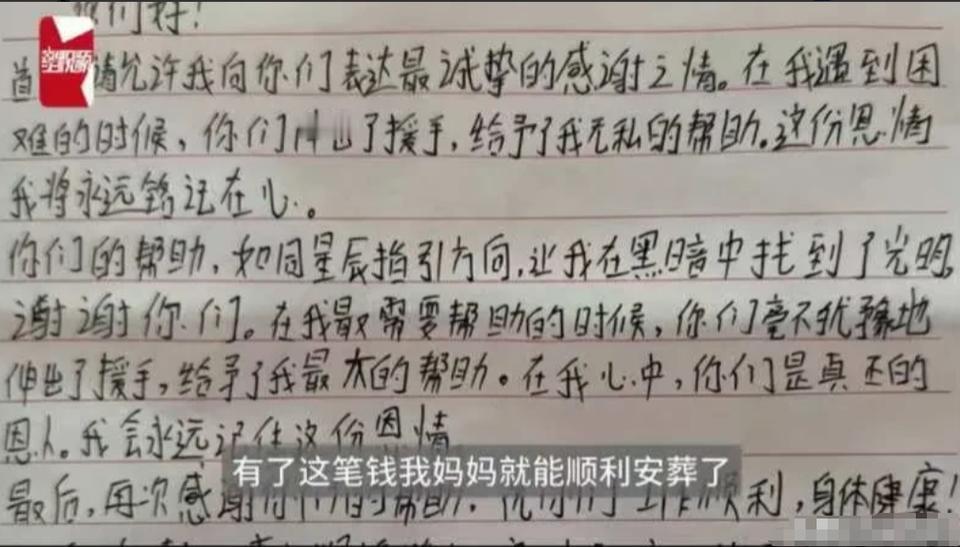 你们好！
首 请允许我向你们表达最诚挚的感谢之情。在我遇到困
难的时候，你们伸出了援手，给予了我无私的帮助。这份恩情
我将永远铭记在心。
你们的帮助，如同星辰指引方向，让我在黑暗中找到了光明，
谢谢你们。在我最需要帮助的时候，你们毫不犹豫地
伸出了援手，给予了我最大的帮助。在我心中，你们是真正的
恩人。我会永远记住这份恩情
有了这笔钱我妈妈就能顺利安葬了
最后，再次感谢你们的帮助。祝你们工作顺利，身体健康！